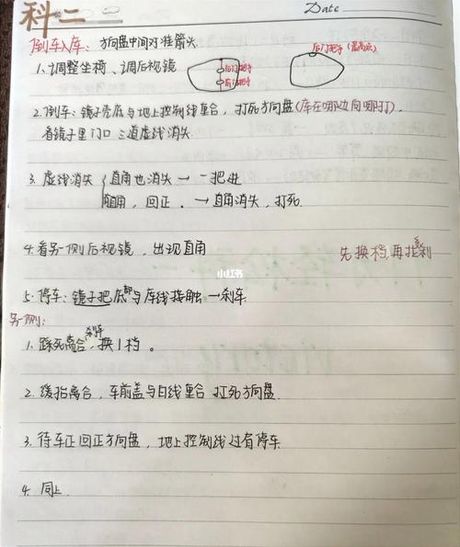 科二
Date
倒车入库: 方向盘中间对准箭头
后门把手 (最高点)
1. 调整坐椅、调后视镜
后门把手
前门把手
2. 倒车: 镜子壳底与地上控制线重合, 打死方向盘(库在哪边向哪打).
看镜子里门口三道虚线消失
3. 虚线消失 直角也消失 → 一把进
直角, 回正. → 直角消失, 打死
4. 看另一侧后视镜, 出现直角
先换档, 再抬刹
小红书
5. 停车: 镜子把底部与库线接触 → 刹车
另一侧:
1. 踩死离合, 刹车 换1档 。
2. 缓抬离合, 车前盖与白线重合 打死方向盘
3. 待车正回正方向盘, 地上控制线没有停车
4. 同上.